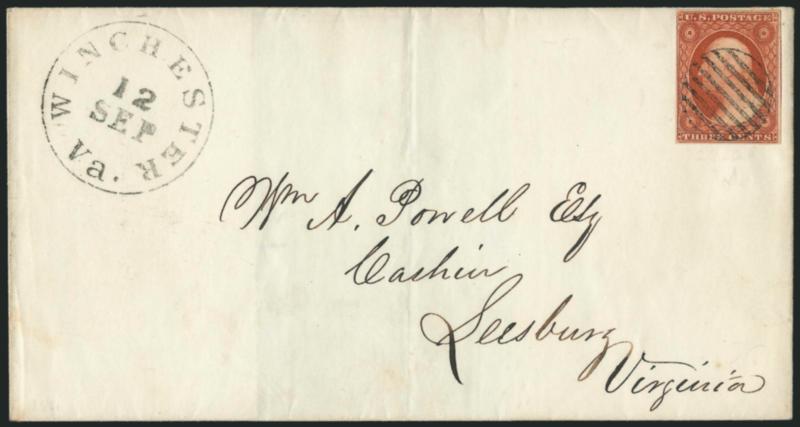 WINCHESTER Va.
12
SEP
U.S. POSTAGE
THREE CENTS
Wm A. Powell Esq
Cashier
Leesburg
Virginia